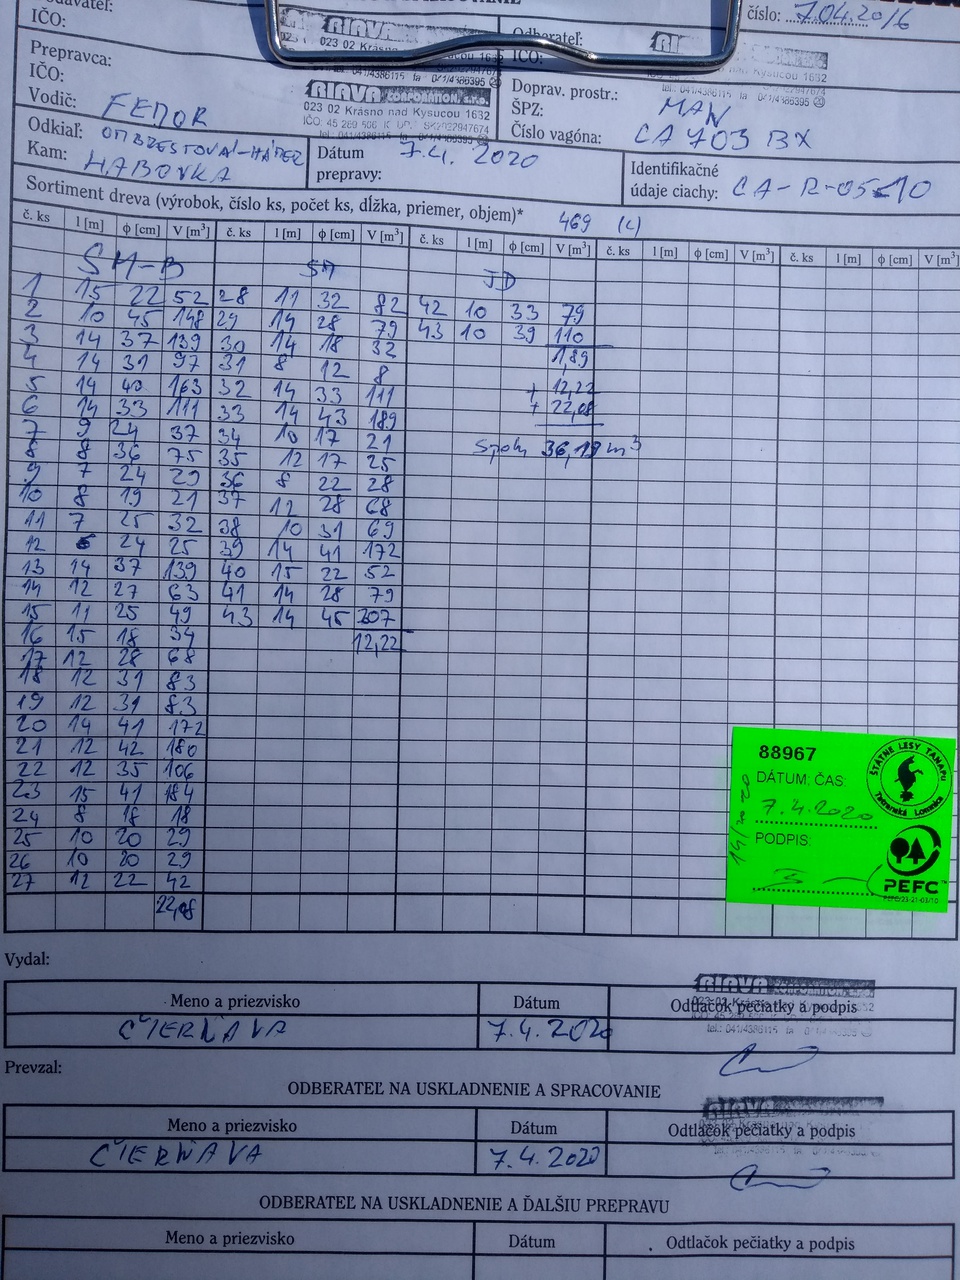 číslo: 7.04.2016
IČO:
RIAVA
023 02 Krásno
Odberateľ:
IČO:
Prepravca:
IČO:
RIAVA CORPORATION, s.r.o.
023 02 Krásno nad Kysucou 1632
Doprav. prostr.: MAN
Vodič: FEDOR
ŠPZ: CA 703 BX
Číslo vagóna:
Odkiaľ:
Kam: HABOVKA
Dátum prepravy: 7.4. 2020
Identifikačné údaje ciachy: CA-R-05-10
Sortiment dreva (výrobok, číslo ks, počet ks, dĺžka, priemer, objem)* 469 (L)
č. ks l [m] ϕ [cm] V [m³] č. ks l [m] ϕ [cm] V [m³] č. ks l [m] ϕ [cm] V [m³] č. ks l [m] ϕ [cm] V [m³] č. ks l [m] ϕ [cm] V [m³]
SM-B SM JD
1 15 22 52 28 11 32 82 42 10 33 79
2 10 45 148 29 14 28 79 43 10 39 110
3 14 37 139 30 14 18 32 1,89
4 14 31 97 31 8 12 8 + 12,22
5 14 40 163 32 14 33 111 + 22,08
6 14 33 111 33 14 43 189
7 9 24 37 34 10 17 21 Spolu 36,19 m³
8 8 36 75 35 12 17 25
9 7 24 29 36 8 22 28
10 8 19 21 37 12 28 68
11 7 25 32 38 10 31 69
12 6 24 25 39 14 41 172
13 14 37 139 40 15 22 52
14 12 27 63 41 14 28 79
15 11 25 49 43 14 45 207
16 15 18 34 12,22
17 12 28 68
18 12 31 83
19 12 31 83
20 14 41 172
21 12 42 180
22 12 35 106
23 15 41 184
24 8 18 18
25 10 20 29
26 10 20 29
27 12 22 42
22,08
88967
DÁTUM; ČAS:
7.4.2020
PODPIS:
14/20 20
ŠTÁTNE LESY TANAPU
Tatranská Lomnica
PEFC
Vydal:
Meno a priezvisko Dátum Odtlačok pečiatky a podpis
ČIERŇAVA 7.4.2020
Prevzal:
ODBERATEĽ NA USKLADNENIE A SPRACOVANIE
Meno a priezvisko Dátum Odtlačok pečiatky a podpis
ČIERŇAVA 7.4.2020
ODBERATEĽ NA USKLADNENIE A ĎALŠIU PREPRAVU
Meno a priezvisko Dátum Odtlačok pečiatky a podpis